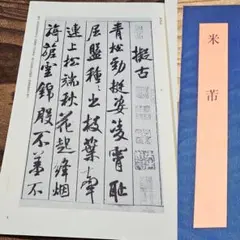 米芾
擬古
青松勁挺姿凌霄恥
屈盤種種出枝葉牽
連上松端秋花起絳烟
旖旎雲錦殷不羞不